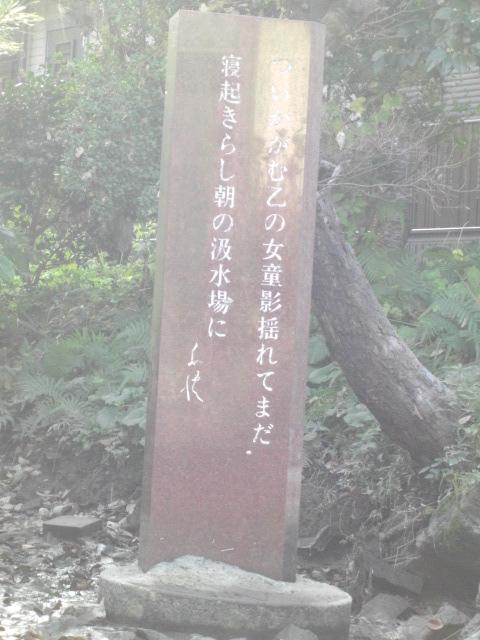 ついかがむ乙の女童影揺れてまだ
寝起きらし朝の汲水場に